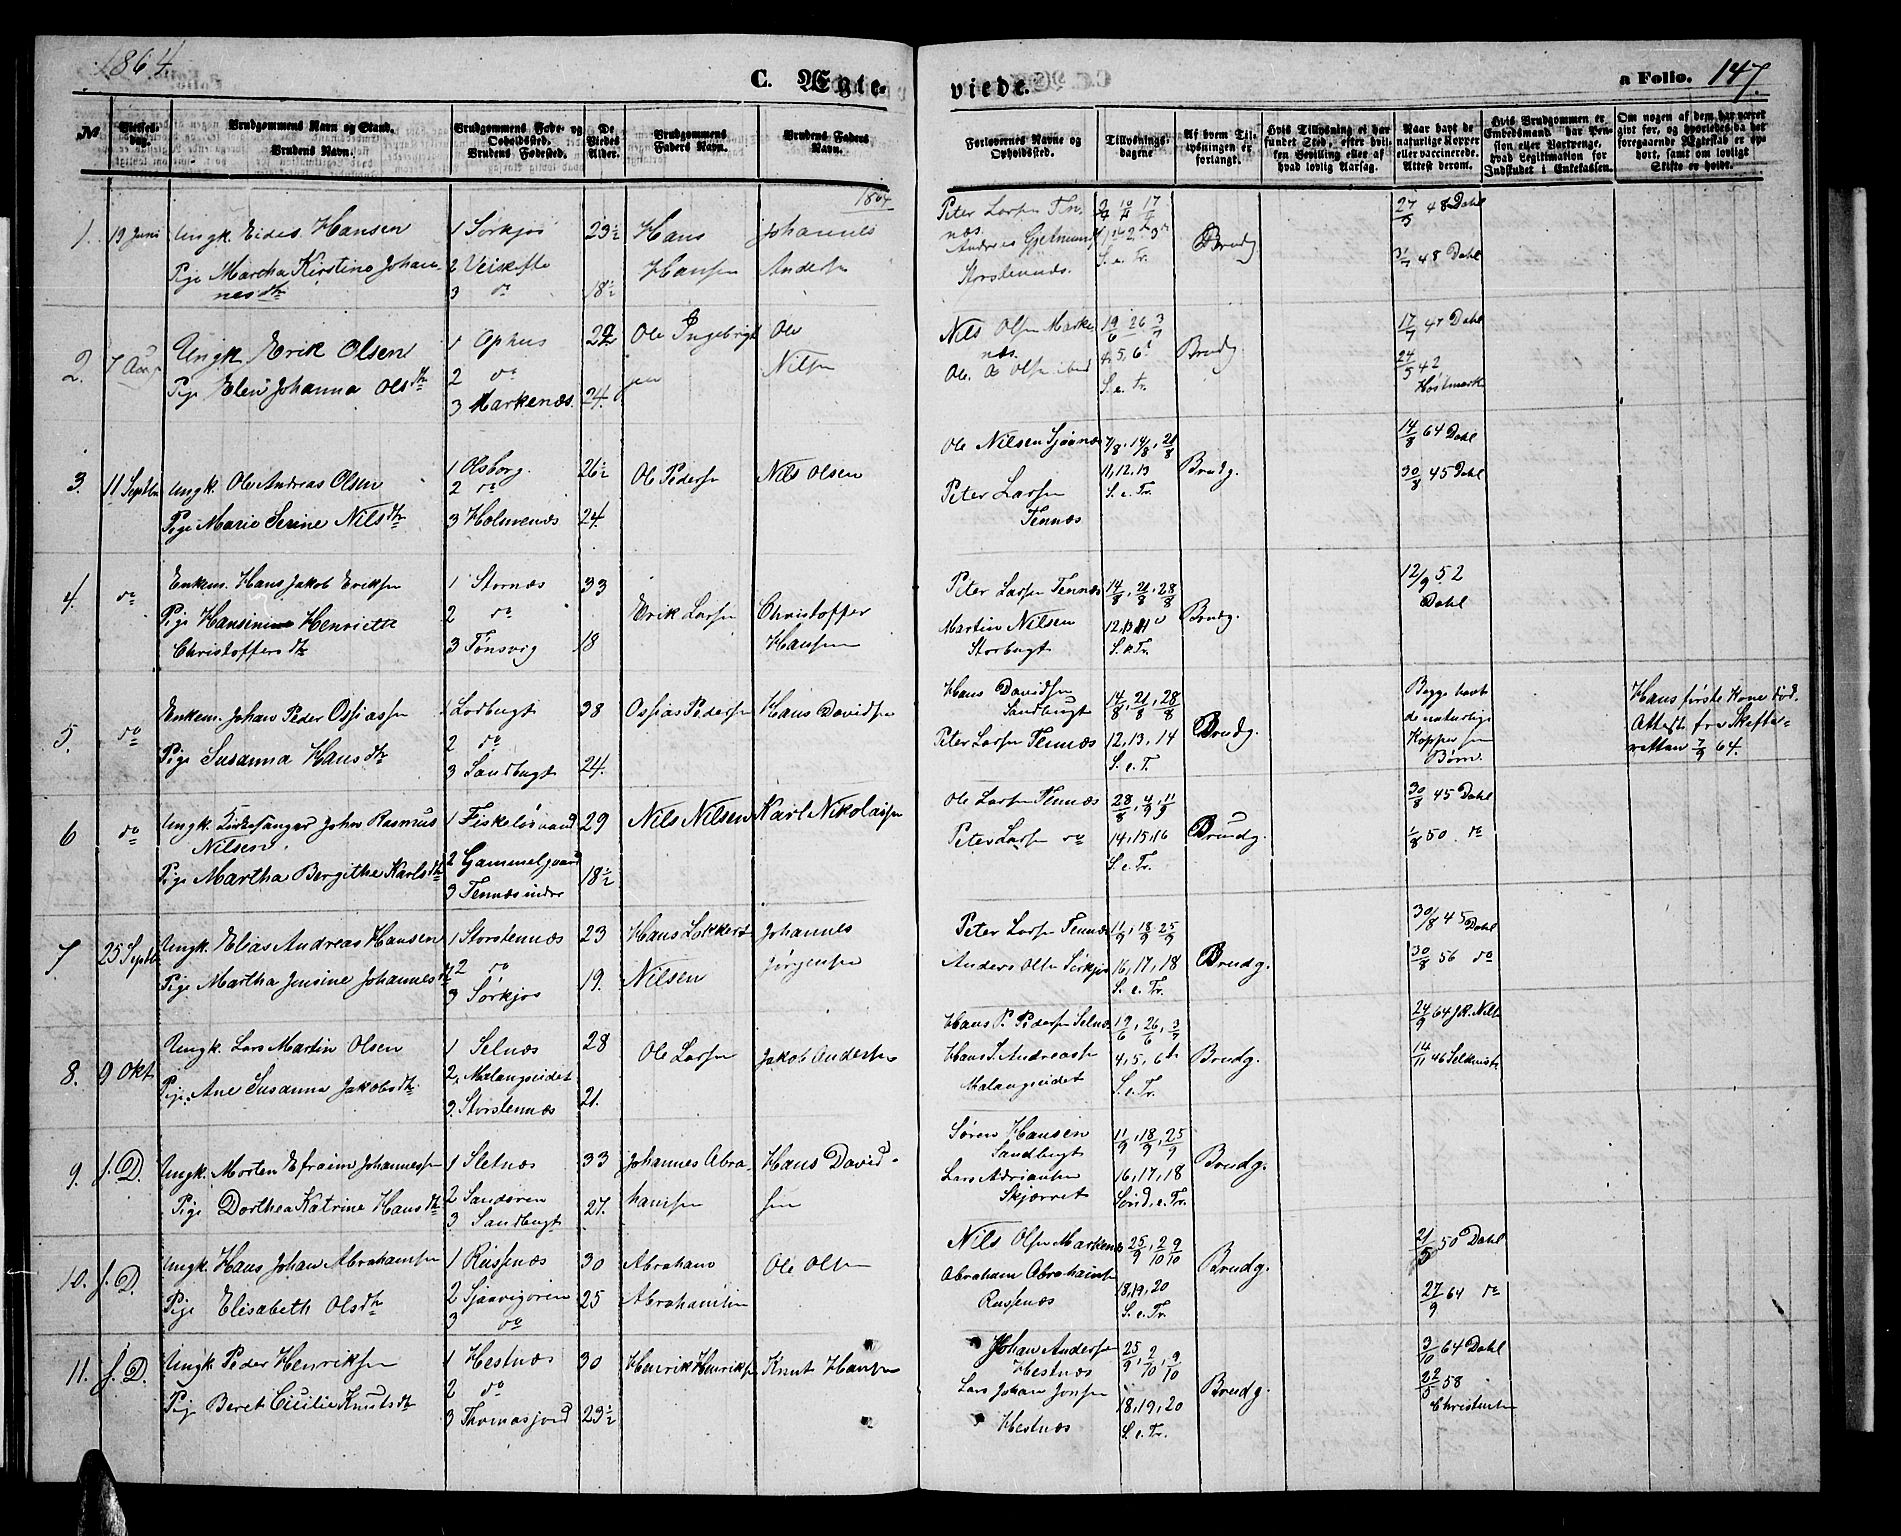 1864.
C. Ægte-
viede.
a Folio. 147.
№
Vielses-
dag.
Brudgommens Navn og Stand.
Brudens Navn.
Brudgommens Føde- og
Opholdssted.
Brudens Fødested.
De
Viedes
Alder.
Brudgommens
Faders Navn.
Brudens Faders
Navn.
Forlovernes Navne og
Opholdssted.
Tillysnings-
dagene
Af hvem Til-
lysningen er
forlangt.
Hvis Tillysning ei har
fundet Sted, efter hvil-
ken Bevilling eller af
hvad lovlig Aarsag.
Naar havt de
naturlige Kopper
eller vaccinerede.
Attest derom.
Hvis Brudgommen er
Embedsmand har Pen-
sion eller Vartpenge,
hvad Legitimation for
Indskudet i Enkekassen.
Om nogen af dem har været
gift før, og hvorledes da det
foregaaende Ægteskab er op-
hørt, samt om lovligt
Skifte er holdt.
1864
1. 19 Juni Ungk. Hansen 1 Sørkjos 23½ Hans Johannes
Pige Martha Kirstine Johan- 2 18½ Hansen Andersen
nesdtr 3 do
Peter Larsen Ten-
næs.
Andreas Gjetmund
Storstennæs.
S. e. Tr. Brudg 27/5 48 Dahl
48 Dahl
2. 7 Aug Ungk Erik Olsen 1 Ophus Ole Ingebrigt Ole
2 do sen Nilsen
Pige Elen Johanna Olsdtr 3 Markenæs. 24.
Nils Olsen Marke 19/6 26 3/7 17/7 47 Dahl
næs. 4, 5, 6t Brudg.
Ole O Olsen ibid S. e. Tr. 24/5 42
Høstmark
3. 11 Septbr Ungk. Ole Andreas Olsen 1 Olsborg. 26½ Ole Pedersen Nils Olsen
2 do
Pige Marie Serine Nilsdtr 3 Holmenæs 24.
Ole Nilsen 7/8, 14/8, 21/8 14/8 64 Dahl
11, 12, 13 Brudg. 30/8 45 Dahl
Peter Larsen S. e. Tr.
Tennæs
4. do Enkem. Hans Jakob Eriksen 1 Stornæs 33
2 do Erik Larsen Christoffer
Pige Henriette
Christoffersdtr 3 Tønsvig 18 Hansen
Peter Larsen Tennæs 14/8, 21/8, 28/8 12/9 52
Martin Nilsen Brudg. Dahl
Storbugt S. e. Tr.
5. do Enkem. Johan Peder Ossiassen 1 Lodbugt 38 Ossias Pedersen Hans Davidsen
2 do
Pige Susanna Hansdtr 3 Sandbugt 24.
Hans Davidsen 14/8, 21/8, 28/8 Begge havt Hans første Kone død.
Sandbugt Brudg. de naturlige Attest fra Skifte-
Peter Larsen Tennæs 12, 13, 14 Kopper som retten 7/9 64.
S. e. T. Børn.
6 do Ungk. Kirkesanger John Rasmus 1 29 Nils Nilsen Karl Nikolaisen
Nilsen. 2 Gammelgaard
Pige Martha Bergithe Karlsdtr 3 Tennæs indre 18½
Ole Larsen Tennæs 28/8, 4/9, 11/9 30/8 45 Dahl
Peter Larsen do 14, 15, 16 Brudg. 1/8 50 do
S. e. Tr.
7 25 Septbr Ungk. Elias Andreas Hansen 1 Storstennæs 23 Hans Lokkert Johannes
2 do
Pige Martha Jensine Johannesdtr 3 Sørkjos 19. Nilsen Jørgensen
Peter Larsen Tennæs 11/9, 18/9 25/9 30/8 45 Dahl
Anders Olsen Sørkjos 16, 17, 18 Brudg. 30/8 56 do
S. e. Tr.
8. 9 Okt Ungk. Lars Martin Olsen 1 Selnæs 28 Ole Larsen Jakob Andersen
2. Malangseidet
Pige, Ane Susanna Jakobsdtr. 3. Storstennæs 21.
Hans P. Pedersen Selnæs 19/6, 26/6, 3/7 24/9 64 J.R. Nils
Hans Andreassen 4, 5, 6te Brudg. 14/11 46
Malangseidet S. e. Tr.
9. s. D. Ungk. Morten Efraim Johannessen 1 Sletnæs 33 Johannes Abra- Hans David-
2 Sandøren
Pige Dorthea Katrine Hansdtr 3 Sandbugt 27. hamsen sen
Søren Hansen 11/9, 18/9, 25/9
Sandbugt Brudg.
Lars Adriansen 16, 17, 18
Skjærret Sønd. e. Tr.
10. s. D. Ungk. Hans Johan Abrahamsen 1 Russenæs 30 Abraham Ole Olsen
2 Sjaavigøren
Pige Elisabeth Olsdtr 3 do 25 Abrahamsen
Nils Olsen Markenæs 25/9, 2/10 9/10 21/5 50 Dahl
Abraham Abrahamsen 18, 19, 20 Brudg.
Russenæs S. e. Tr. 27/9 64 do
11. s. D. Ungk Peder Henriksen 1 Hestnæs 30 Henrik Henriksen Knut Hansen
2 do
Pige Beret Cicilie Knutsdtr 3 Thomasjord 23½
Johan Andersen 25/9, 2/10, 9/10 3/10 64 Dahl
Hestnæs
Lars Johan Jonsen 18, 19, 20 Brudg. 22/5 58
Hestnæs S. e. Tr. Christensen